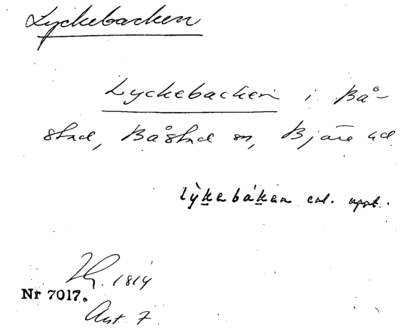 Lyckebacken
Lyckebacken i Bå-
stad, Båstad sn, Bjäre hd
lỳkebáken enl. uppt.
1814
Nr 7017.
Ant. 7